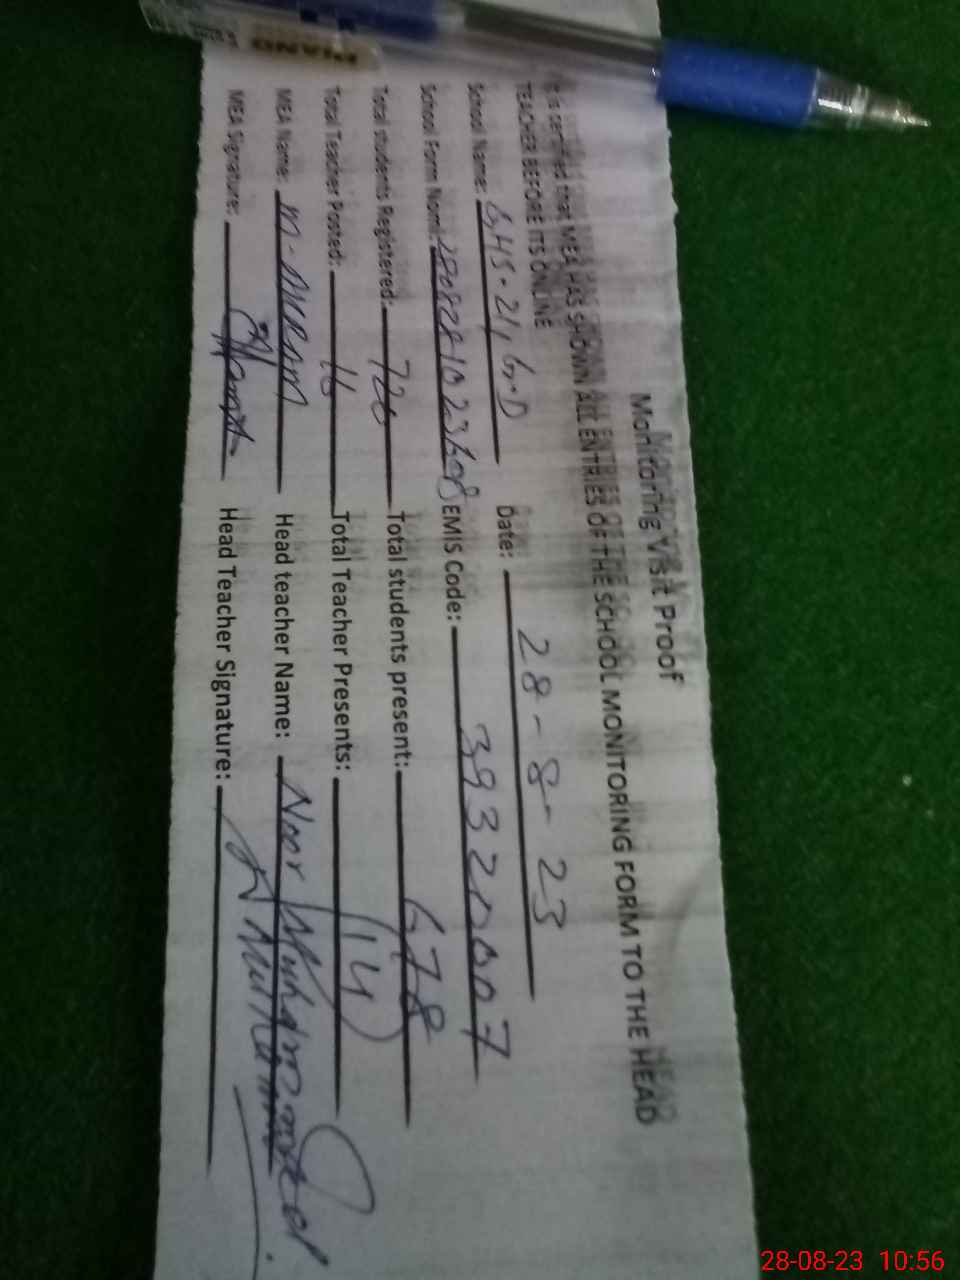 PIANO
Monitoring Visit Proof
It is certified that MEA HAS SHOWN ALL ENTRIES OF THE SCHOOL MONITORING FORM TO THE HEAD
TEACHER BEFORE ITS ONLINE
School Name: GHS-21, G.D Date: 28-8-23
School Form Nom: EMIS Code: 39320007
Total students Registered: 720 Total students present: 678
Total Teacher Posted: 16 Total Teacher Presents: (14)
MEA Name: M. Head teacher Name: Noor Muhammad
MEA Signature: Head Teacher Signature:
28-08-23 10:56